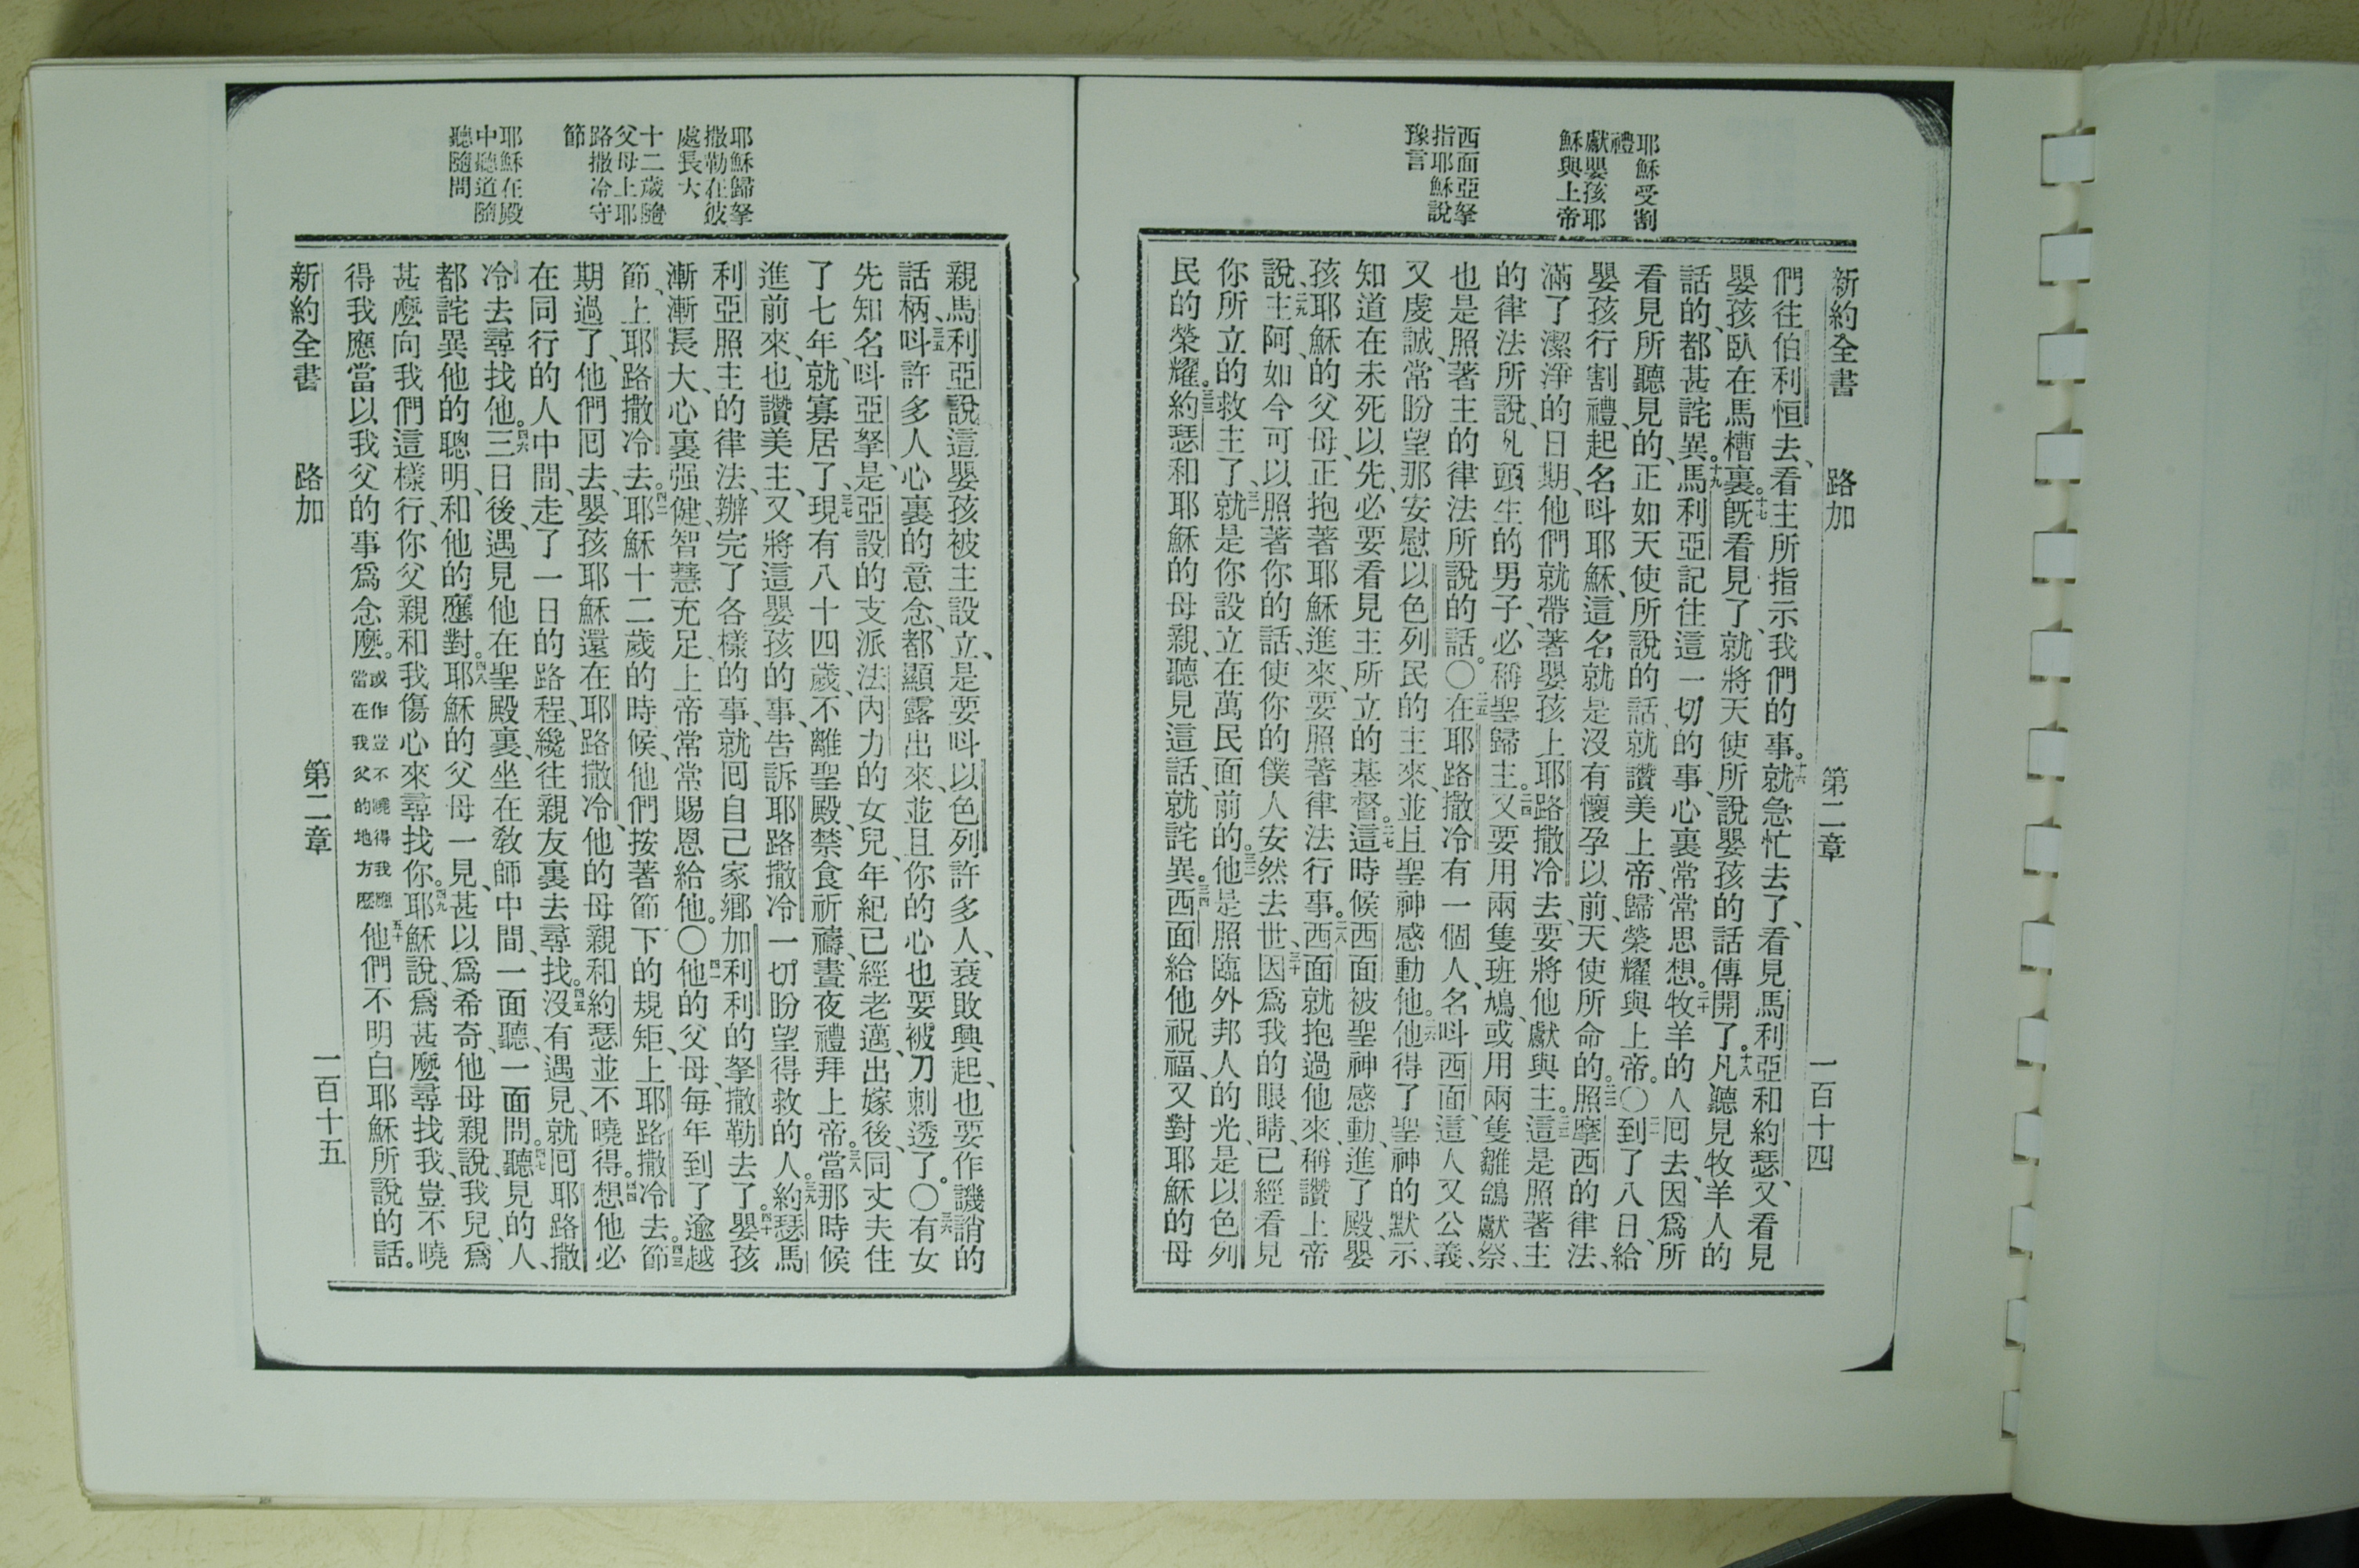 耶穌受割
禮
獻嬰孩耶
穌與上帝
西面亞拏
指耶穌說
豫言
新約全書 路加 第二章 一百十四
們往伯利恒去、看主所指示我們的事。十六就急忙去了、看見馬利亞和約瑟、又看見
嬰孩臥在馬槽裏。十七旣看見了、就將天使所說嬰孩的話傳開了。十八凡聽見牧羊人的
話的、都甚詫異。十九馬利亞記住這一切的事、心裏常常思想。二十牧羊的人囘去、因爲所
看見所聽見的、正如天使所說的話、就讚美上帝、歸榮耀與上帝。〇二一到了八日、給
嬰孩行割禮、起名呌耶穌、這名就是沒有懷孕以前、天使所命的。二二照摩西的律法、
滿了潔淨的日期、他們就帶著嬰孩上耶路撒冷去、要將他獻與主。二三這是照著主
的律法所說、凡頭生的男子、必稱聖歸主。二四又要用兩隻班鳩、或用兩隻雛鴿獻祭、
也是照著主的律法所說的話。〇二五在耶路撒冷有一個人、名呌西面、這人又公義、
又虔誠、常盼望那安慰以色列民的主來、並且聖神感動他。二六他得了聖神的默示、
知道在未死以先、必要看見主所立的基督。二七這時候西面被聖神感動、進了殿、嬰
孩耶穌的父母、正抱著耶穌進來、要照著律法行事。二八西面就抱過他來、稱讚上帝
說、二九主阿、如今可以照著你的話、使你的僕人安然去世、三十因爲我的眼睛、已經看見
你所立的救主了、三一就是你設立在萬民面前的。三二他是照臨外邦人的光、是以色列
民的榮耀。三三約瑟和耶穌的母親、聽見這話、就詫異。三四西面給他祝福、又對耶穌的母
耶穌歸拏
撒勒在彼
處長大
十二歲隨
父母上耶
路撒冷守
節
耶穌在殿
中聽道隨
聽隨問
親馬利亞說、這嬰孩被主設立、是要呌以色列許多人、衰敗興起、也要作譏誚的
話柄、三五呌許多人心裏的意念、都顯露出來、並且你的心也要被刀刺透了。〇三六有女
先知名呌亞拏、是亞設的支派法內力的女兒、年紀已經老邁、出嫁後、同丈夫住
了七年、就寡居了、三七現有八十四歲、不離聖殿、禁食祈禱、晝夜禮拜上帝。三八當那時候
進前來、也讚美主、又將這嬰孩的事、告訴耶路撒冷一切盼望得救的人。三九約瑟馬
利亞照主的律法、辦完了各樣的事、就囘自己家鄉加利利的拏撒勒去了。四十嬰孩
漸漸長大、心裏强健、智慧充足、上帝常常賜恩給他。〇四一他的父母、每年到了逾越
節、上耶路撒冷去。四二耶穌十二歲的時候、他們按著節下的規矩、上耶路撒冷去。四三節
期過了、他們囘去、嬰孩耶穌還在耶路撒冷、他的母親和約瑟並不曉得。四四想他必
在同行的人中間、走了一日的路程、纔往親友裏去尋找。四五沒有遇見、就囘耶路撒
冷去尋找他。四六三日後、遇見他在聖殿裏、坐在敎師中間、一面聽、一面問。四七聽見的人、
都詫異他的聰明、和他的應對。四八耶穌的父母一見、甚以爲希奇、他母親說、我兒、爲
甚麼向我們這樣行、你父親和我傷心來尋找你。四九耶穌說、爲甚麼尋找我、豈不曉
得我應當以我父的事爲念麼。或作豈不曉得我應當在我父的地方麼五十他們不明白耶穌所說的話。
新約全書 路加 第二章 一百十五